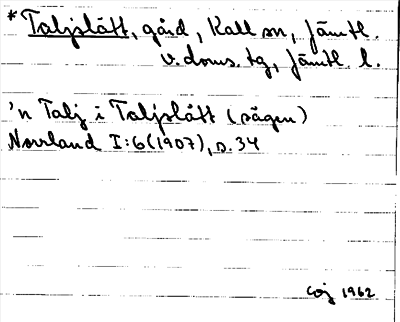 *Taljslått, gård, Kall sn, Jämtl.
v. doms. tg, Jämtl. l.
'n Talj i Taljslått (sägen)
Norrland I:6 (1907), s. 34
1962